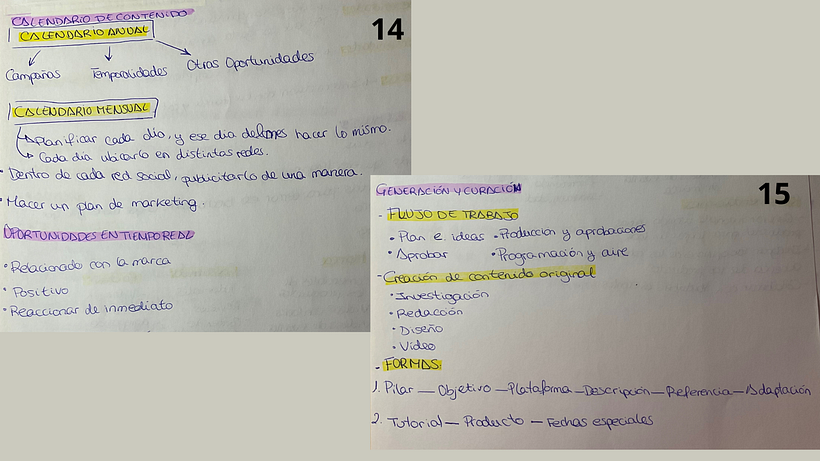 CALENDARIO DE CONTENIDO
14
CALENDARIO ANUAL
Campañas Temporalidades Otras Oportunidades
CALENDARIO MENSUAL
Planificar cada día, y ese día debemos hacer lo mismo.
Cada día ubicarlo en distintas redes.
• Dentro de cada red social, publicitarlo de una manera.
• Hacer un plan de marketing.
OPORTUNIDADES EN TIEMPO REAL
• Relacionado con la marca
• Positivo
• Reaccionar de inmediato
15
GENERACIÓN Y CURACIÓN
- FLUJO DE TRABAJO
• Plan e ideas • Produccion y aprobaciones
• Aprobar • Programación y aire
- Creación de contenido original
• Investigación
• Redacción
• Diseño
• Video
- FORMAS:
1. Pilar — Objetivo — Plataforma — Descripción — Referencia — Adaptación
2. Tutorial — Producto — Fechas especiales